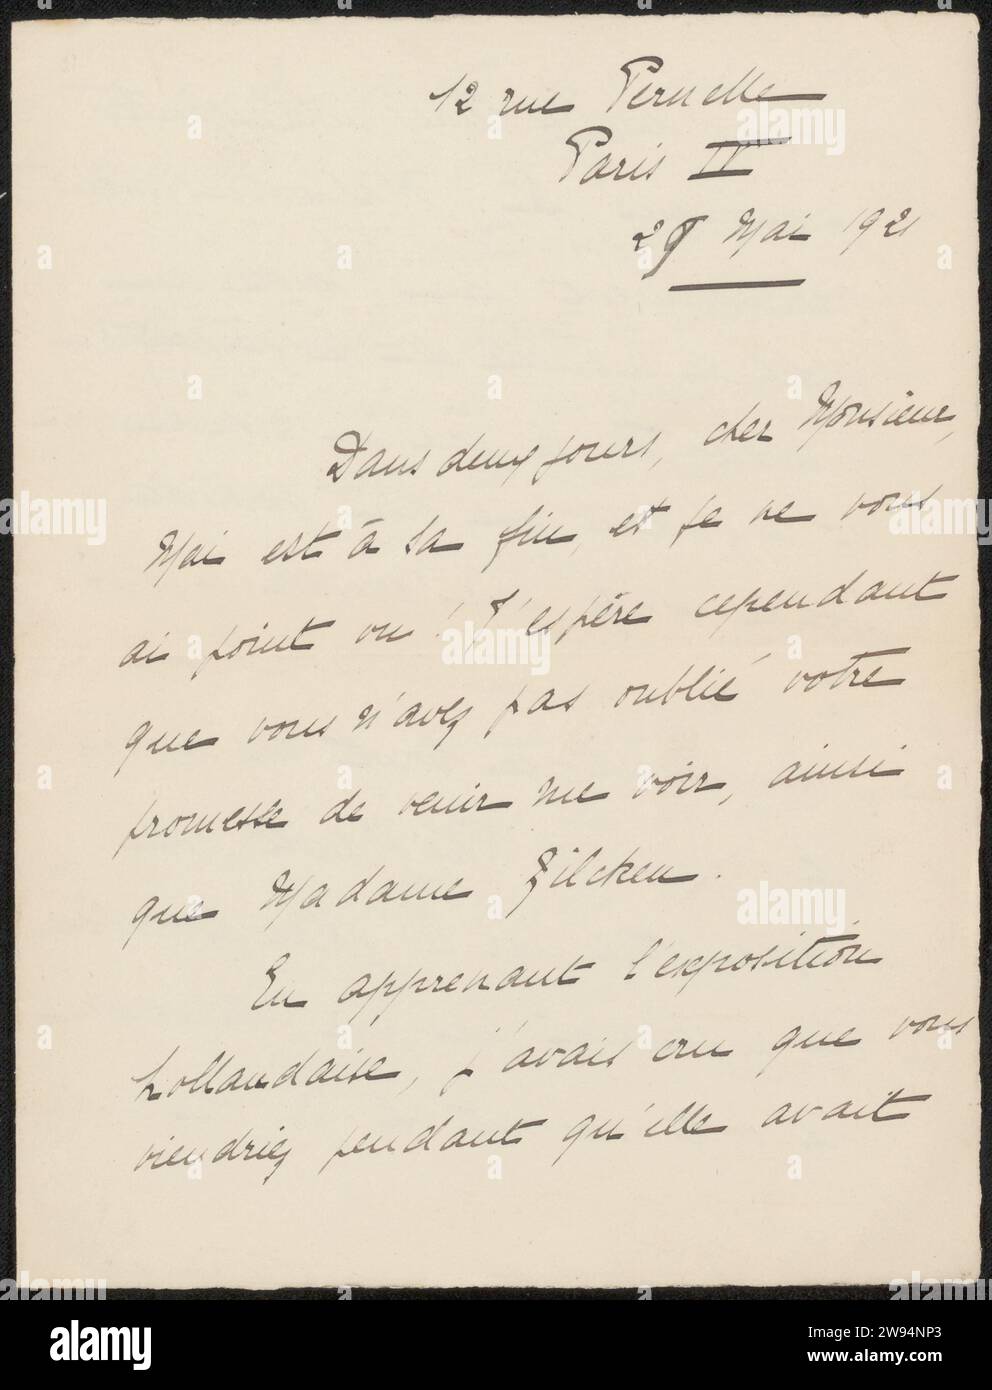 12 rue Pernelle
Paris IV
29 Mai 1921
Dans deux jours, cher Monsieur,
Mai est à sa fin, et je ne vous
ai point vu ! J'espère cependant
que vous n'avez pas oublié votre
promesse de venir me voir, ainsi
que Madame Zilcken.
En apprenant l'exposition
hollandaise, j'avais cru que vous
viendriez pendant qu'elle avait
alamy
Image ID: 2W94NP3
www.alamy.com